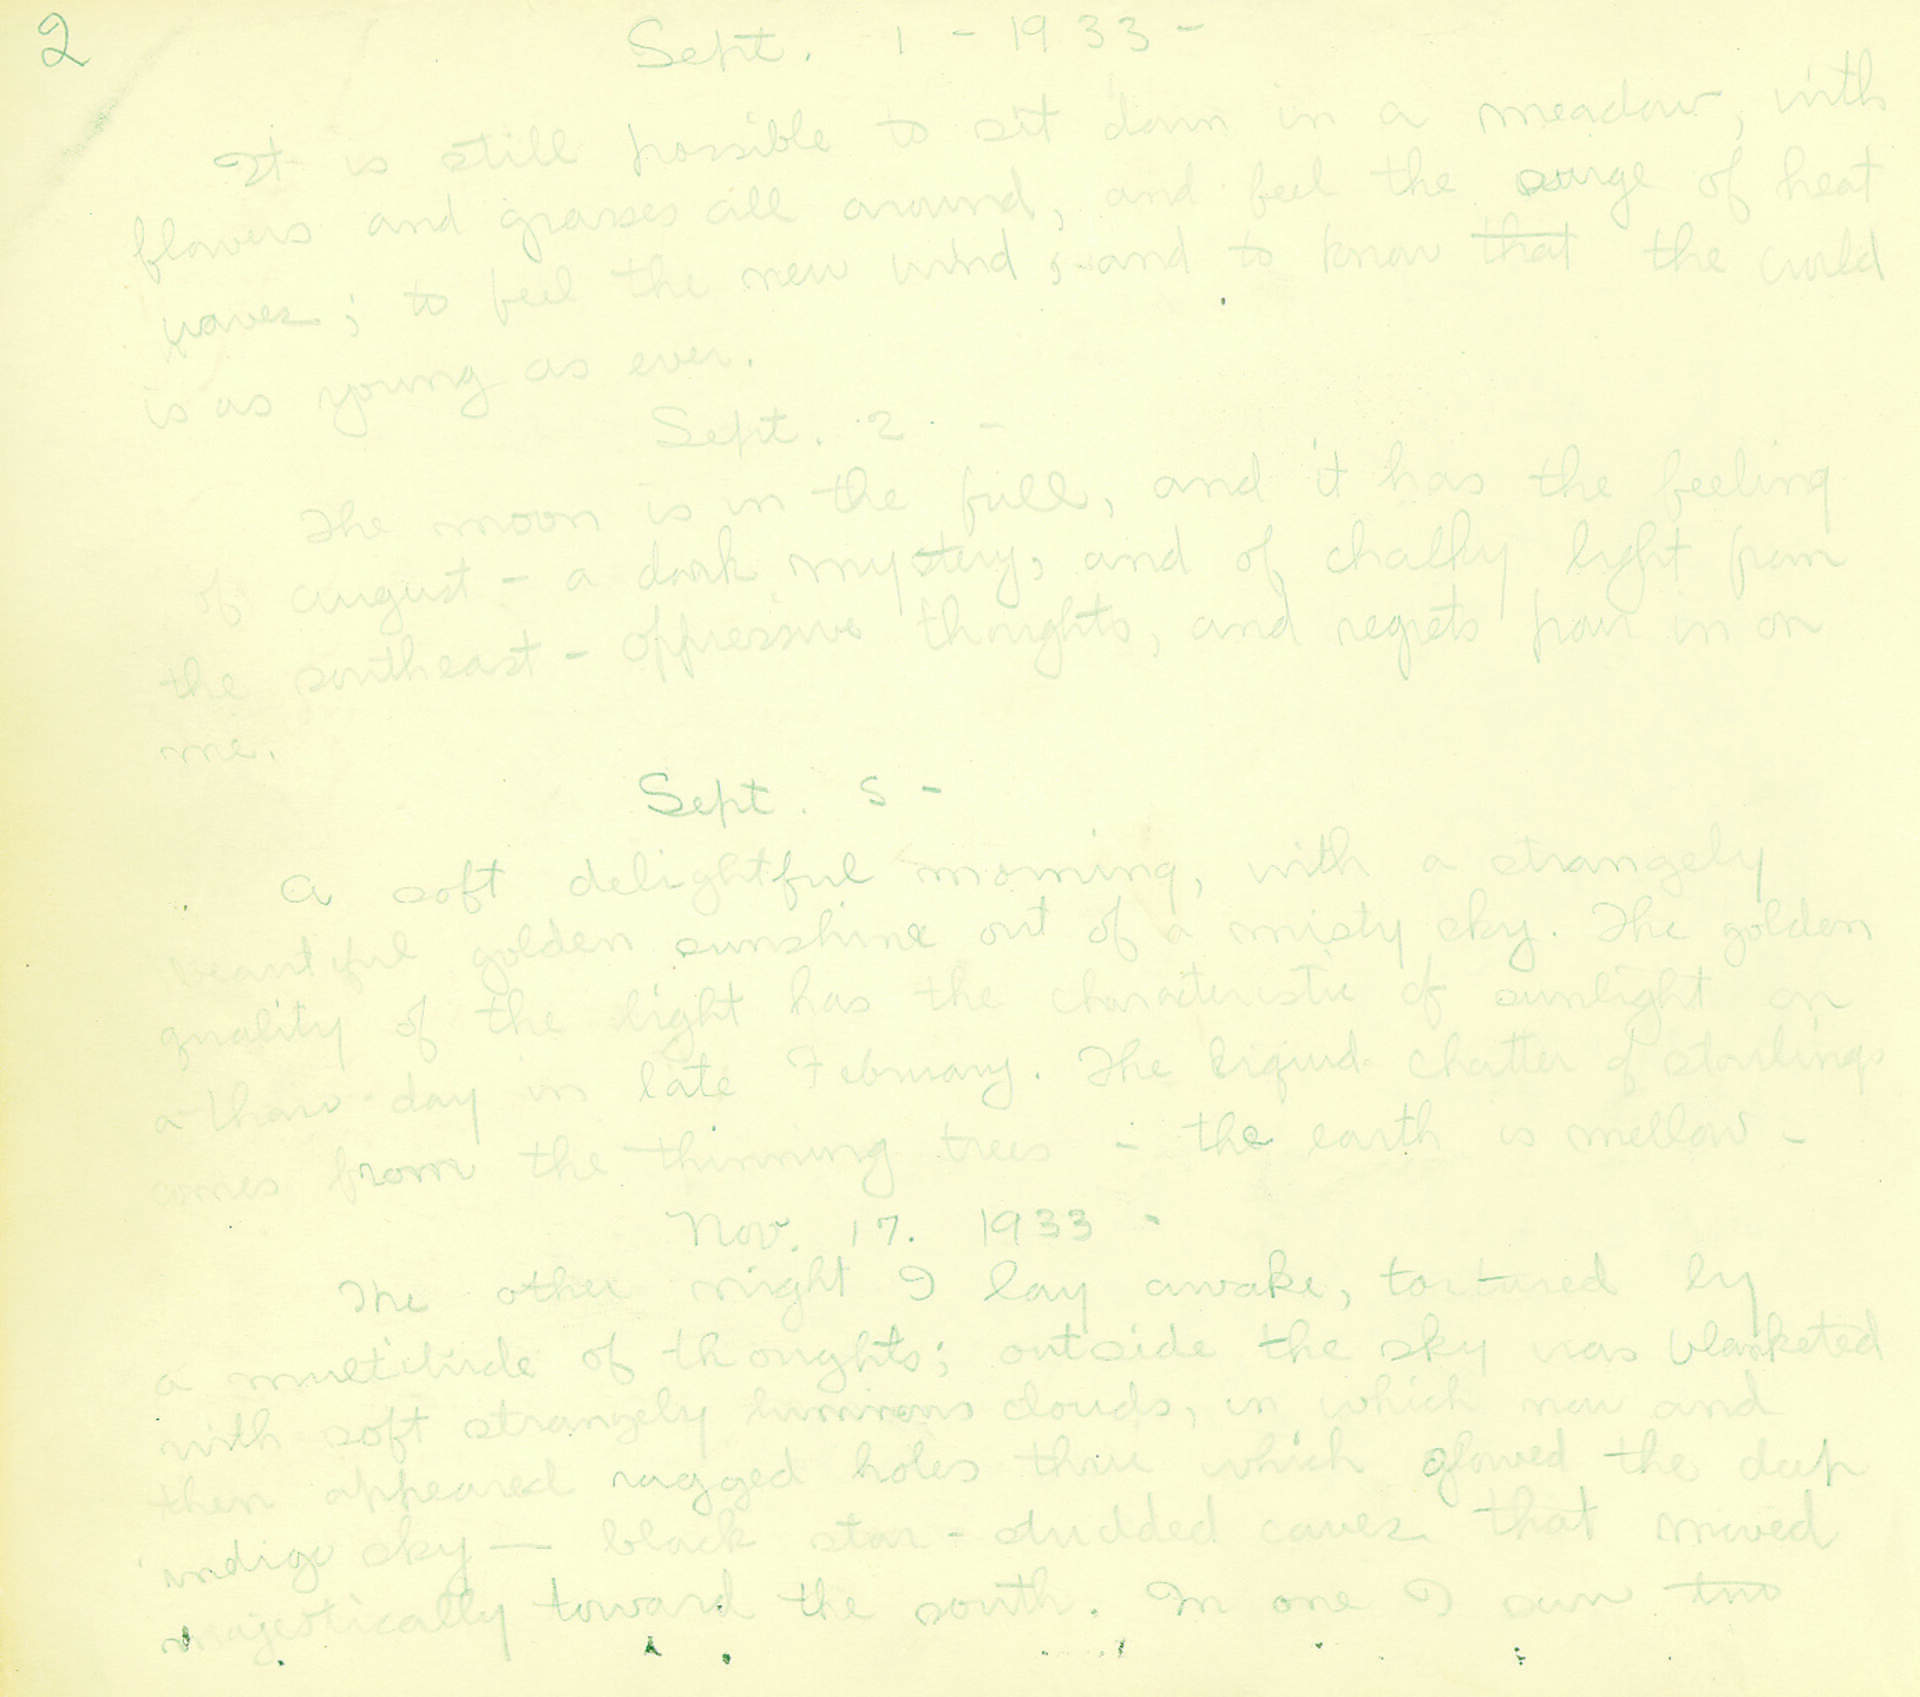 2
Sept. 1 - 1933 -
It is still possible to sit down in a meadow, with
flowers and grasses all around, and feel the surge of heat
waves; to feel the new wind, and to know that the world
is as young as ever.
Sept. 2 -
The moon is in the full, and it has the feeling
of august - a dark mystery, and of chalky light from
the southeast - oppressive thoughts, and regrets pour in on
me.
Sept. 5 -
A soft delightful morning, with a strangely
beautiful golden sunshine out of a misty sky. The golden
quality of the light has the characteristic of sunlight on
a thaw-day in late February. The liquid chatter of starlings
comes from the thinning trees - the earth is mellow -
Nov. 17. 1933 -
The other night I lay awake, tortured by
a multitude of thoughts; outside the sky was blanketed
with soft strangely luminous clouds, in which now and
then appeared ragged holes thru which glowed the deep
indigo sky — black star-studded caves that moved
majestically toward the south. In one I saw two